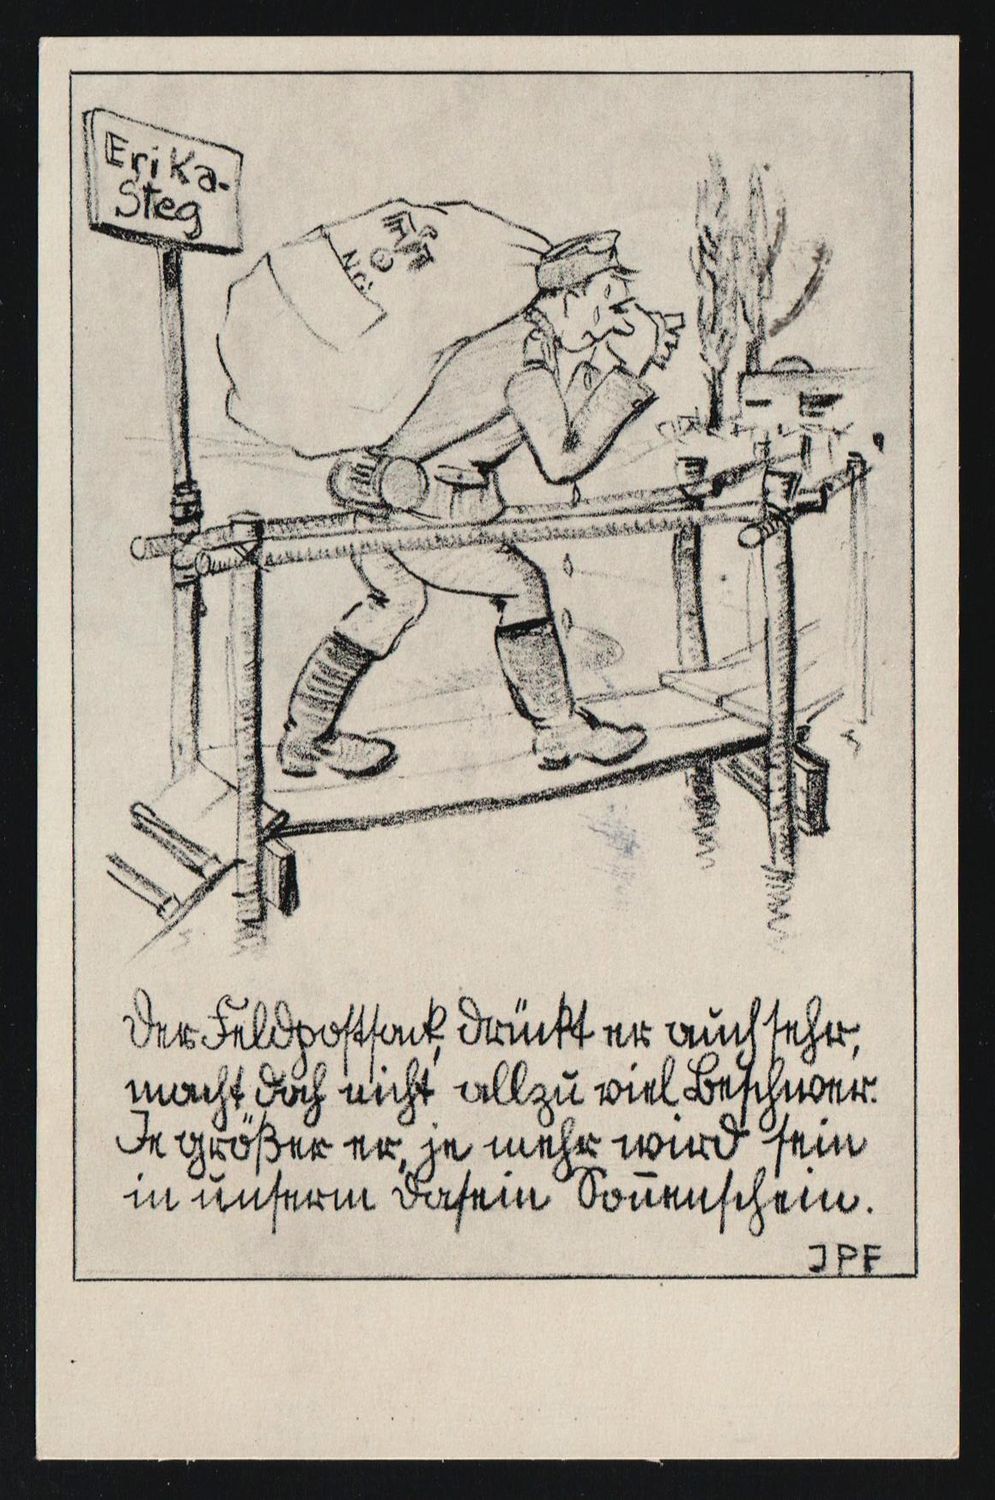 Erika-
Steg
Nr:
Der Feldpostsack, drückt er auch sehr,
macht doch nicht allzu viel Beschwer.
Je größer er, je mehr wird sein
in unserm Dasein Soñenschein.
JPF